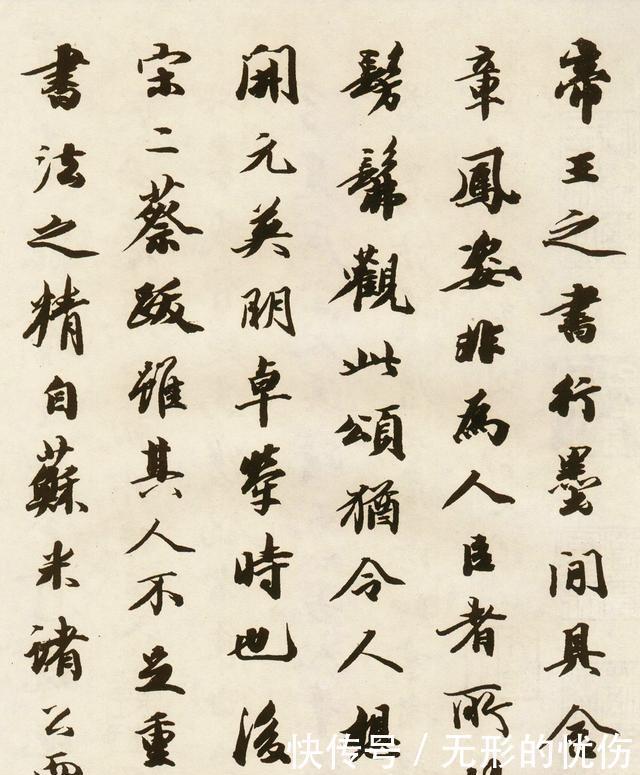 帝王之書行墨間具含
章鳳姿非為人臣者所
髣髴觀此頌猶令人想
開元英明卓犖時也後
宋二蔡跋雖其人不足重
書法之精自蘇米諸公而
快传号 / 无形的忧伤